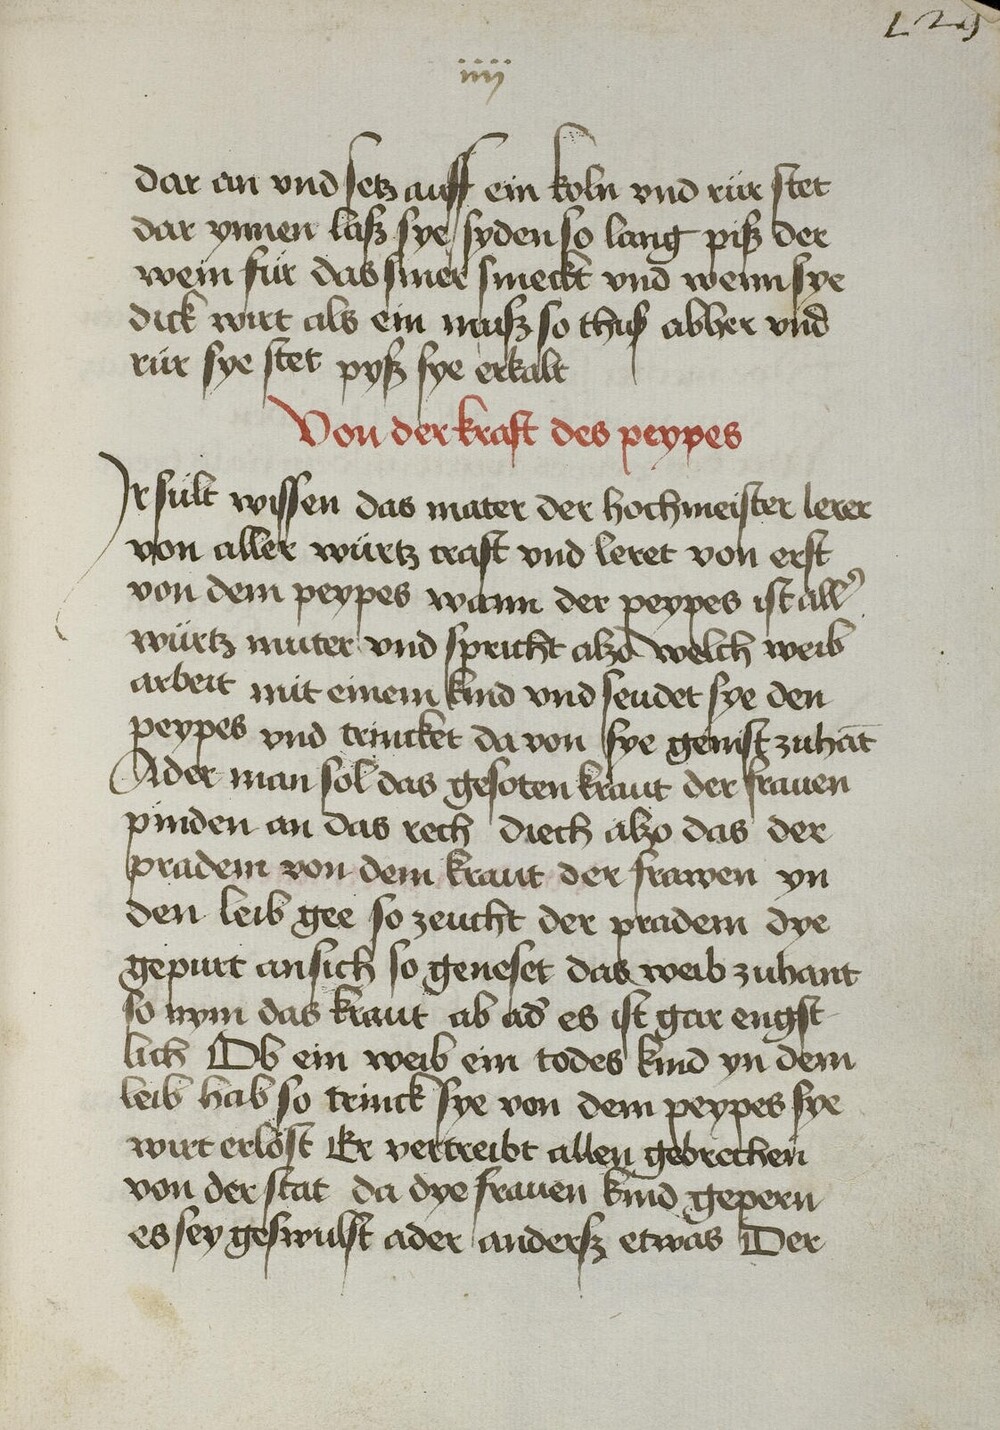 129
iiij
dar an vnd setz auff ein koln vnd rür stet
dar ynnen lasz sye syden so lang pisz der
wein für das smer smeckt vnd wenn sye
dick wirt als ein musz so thus abher vnd
rür sye stet pysz sye erkalt
Von der kraft des peypes
Ir sült wissen das mater der hochmeister lerer
von aller würtz craft vnd leret von erst
von dem peypes wann der peypes ist all'
würtz muter vnd spricht alzo welch weib
arbeit mit einem kind vnd seudet sye den
peypes vnd trincket da von sye genist zuhāt
Ader man sol das gesoten kraut der frauen
pinden an das rech diech alzo das der
pradem von dem kraut der frawen yn
den leib gee so zeucht der pradem dye
gepurt an sich so geneset das weib zuhant
so nym das kraut ab ad' es ist gar engst
lich Ob ein weib ein todes kind yn dem
leib hab so trinck sye von dem peypes sye
wirt erlöst Er vertreibt allen gebrechen
von der stat da dye frauen kind gepern
es sey geswulst ader andersz etwas Der